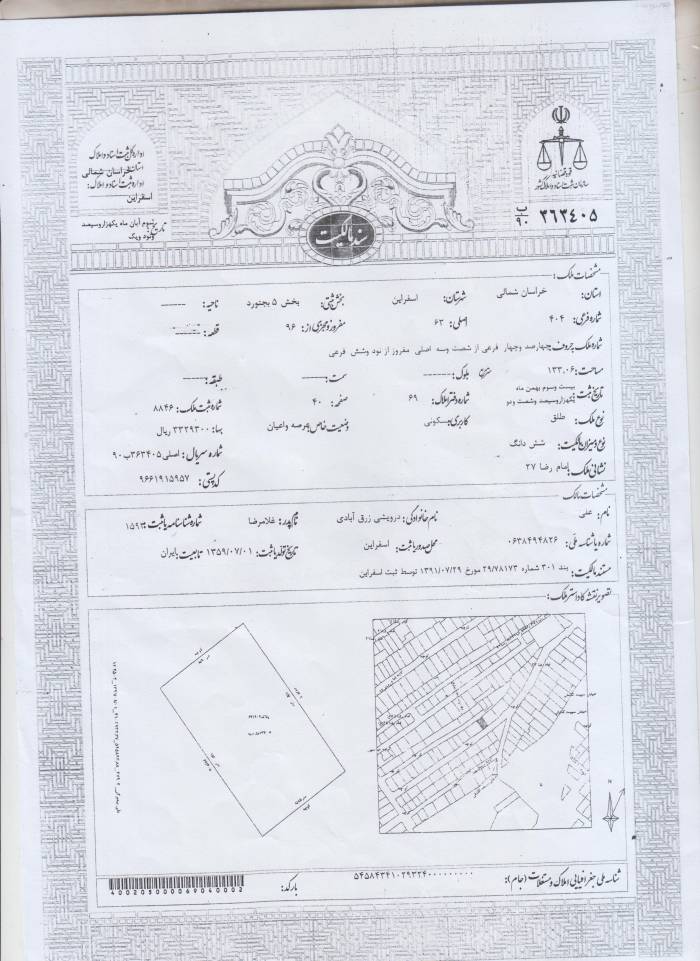 اداره کل ثبت اسناد و املاک
استان خراسان شمالی
اداره ثبت اسناد و املاک:
اسفراین
تاریخ: سوم آبان ماه یکهزاروسیصد
ونود ویک
قوه قضائیه
سازمان ثبت اسناد و املاک کشور
ب/۹۰ ۳۶۳۴۰۵
سند مالکیت
مشخصات ملک:
استان: خراسان شمالی شهرستان: اسفراین بخش ثبتی: بخش ۵ بجنورد ناحیه: -----
شماره فرعی: ۴۰۴ اصلی: ۶۳ مفروز و مجزی از: ۹۶ قطعه: -----
شماره ملک به حروف: چهارصد وچهار فرعی از شصت وسه اصلی مفروز از نود وشش فرعی
مساحت: ۱۳۳,۰۶ مترمربع بلوک: ------- سمت: ------ طبقه: -----
تاریخ ثبت: بیست وسوم بهمن ماه یکهزاروسیصد وشصت ودو شماره دفتر املاک: ۶۹ صفحه: ۴۰ شماره ثبت ملک: ۸۸۴۶
نوع ملک: طلق کاربری: مسکونی وضعیت خاص: عرصه واعیان بها: ۳۳۲۹۳۰۰ ریال
نوع و میزان مالکیت: شش دانگ شماره سریال: اصلی۳۶۳۴۰۵ب۹۰
نشانی ملک: امام رضا ۲۷ کد پستی: ۹۶۶۱۹۱۵۹۵۷
مشخصات مالک:
نام: علی نام خانوادگی: درویشی زرق آبادی نام پدر: غلامرضا شماره شناسنامه یا ثبت: ۱۵۹۲
شماره یا شناسه ملی: ۰۶۳۸۴۹۴۸۲۶ محل صدور یا ثبت: اسفراین تاریخ تولد یا ثبت: ۱۳۵۹/۰۷/۰۱ تابعیت: ایران
مستند مالکیت: بند ۳۰۱ شماره ۲۹/۷۸۱۷۳ مورخ ۱۳۹۱/۰۷/۲۹ توسط ثبت اسفراین
تصویر نقشه کاداستر ملک:
N
شناسه ملی جغرافیایی املاک و مستغلات (جام): ۵۴۵۸۴۳۴۱۰۲۹۳۲۴۰۰۰۰۰۰۰۰۰
بارکد:
400205000069040002